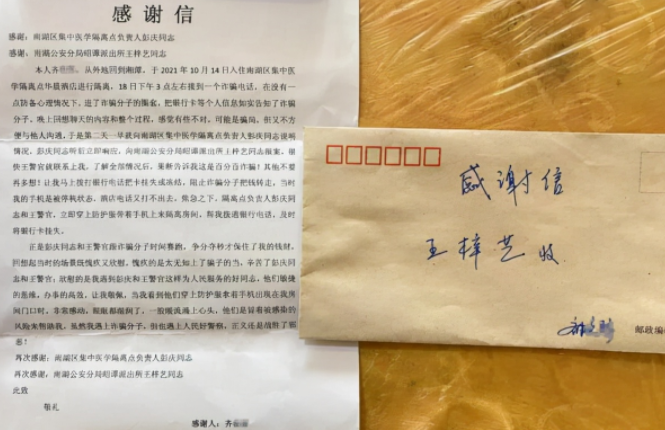 感谢信
感谢：南湖区集中医学隔离点负责人彭庆同志
感谢：南湖公安分局昭谭派出所王梓艺同志
本人齐 从外地回到湘潭，于 2021 年 10 月 14 日入住南湖区集中医
学隔离点华晨酒店进行隔离，18 日下午 3 点左右接到一个诈骗电话，在没有
一点防备心理情况下，进了诈骗分子的圈套，把银行卡等个人信息如实告知了诈骗
分子。晚上回想聊天的内容和整个过程，感觉有些不对，可能是骗局，但又不方
便与他人沟通，于是第二天一早就向南湖区集中医学隔离点负责人彭庆同志说明
情况，彭庆同志听后立即响应，向南湖公安分局昭谭派出所王梓艺同志报案，很
快王警官就联系上我，了解全部情况后，果断告诉我这是百分百诈骗！其他不要
再多想！让我马上拨打银行电话把卡挂失或冻结，阻止诈骗分子把钱转走，当时
我的手机是被停机状态，酒店电话又打不出去，焦急之下，隔离点负责人彭庆同
志和王警官，立即穿上防护服带着手机上来隔离房间，帮我拨通银行电话，及时
将银行卡挂失。
正是彭庆同志和王警官跟诈骗分子时间赛跑，争分夺秒才保住了我的钱财，
回想起当时的场景既愧疚又欣慰，愧疚的是太无知上了骗子的当，辛苦了彭庆同
志和王警官；欣慰的是我遇到彭庆和王警官这样为人民服务的好同志，他们敏捷
的思维，办事的高效，让我敬佩，当我看到他们穿上防护服拿着手机出现在我房
间门口时，非常感动，眼眶都湿润了，一股暖流涌上心头，他们是冒着被感染的
风险来帮助我，虽然我遇上诈骗分子，但也遇上人民好警察，正义还是战胜了邪
恶！
再次感谢：南湖区集中医学隔离点负责人彭庆同志
再次感谢：南湖公安分局昭谭派出所王梓艺同志
此致
敬礼
感谢人：齐
感谢信
王梓艺 收
邮政编